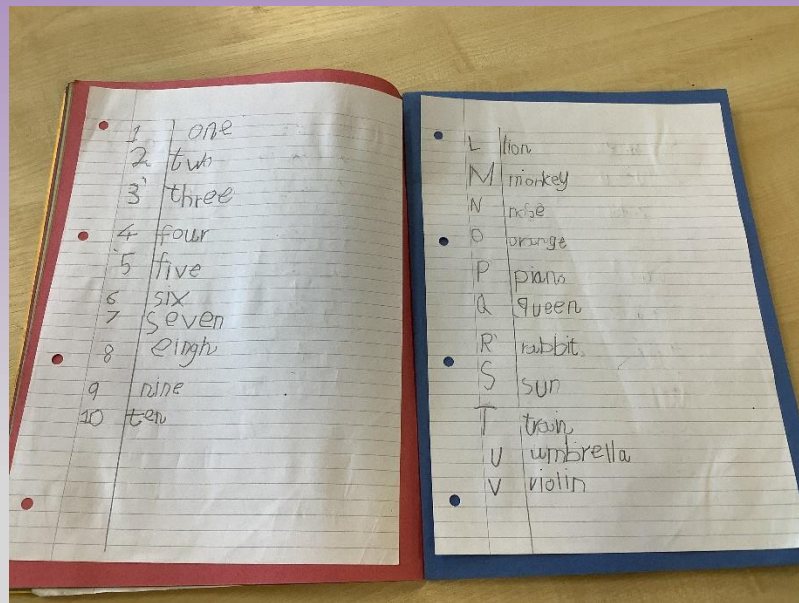 1 one
2 two
3 three
4 four
5 five
6 six
7 seven
8 eingh
9 nine
10 ten
L lion
M monkey
N nose
O orange
P piano
Q queen
R rabbit
S sun
T train
U umbrella
V violin